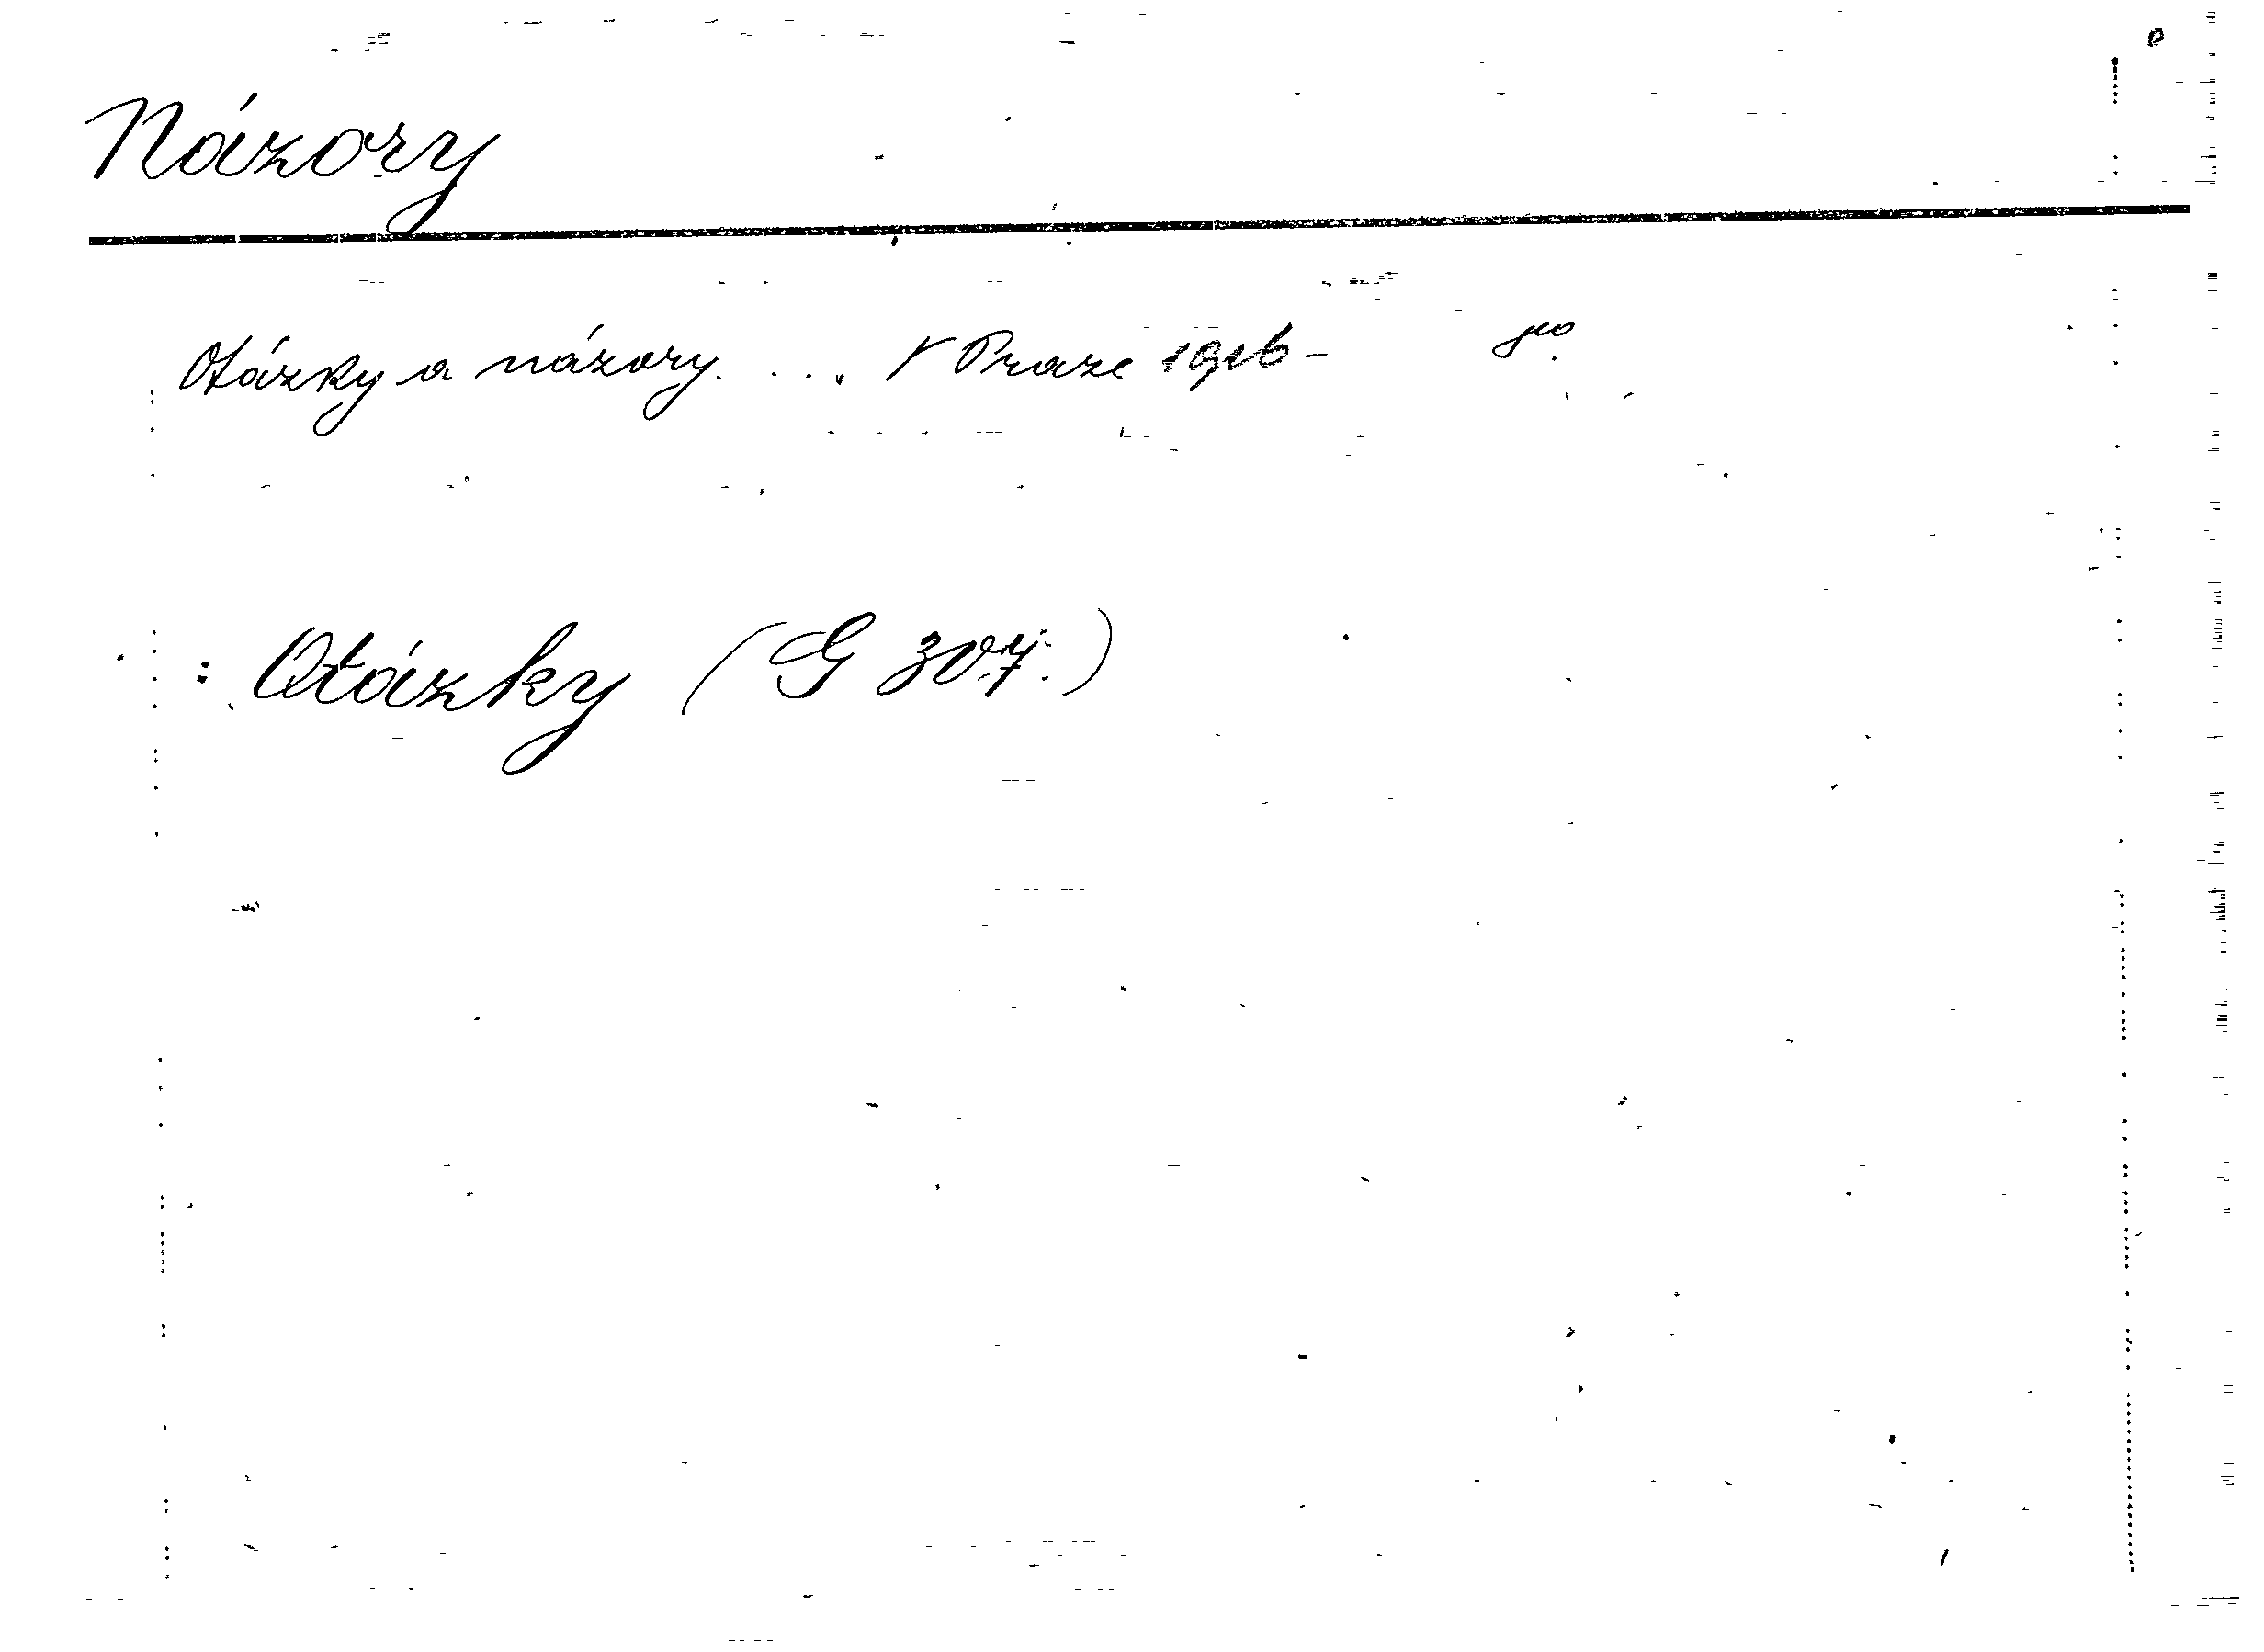 Názory
Otázky a názory. ... V Praze 1926 - 8º.
: Otázky (G 307.)